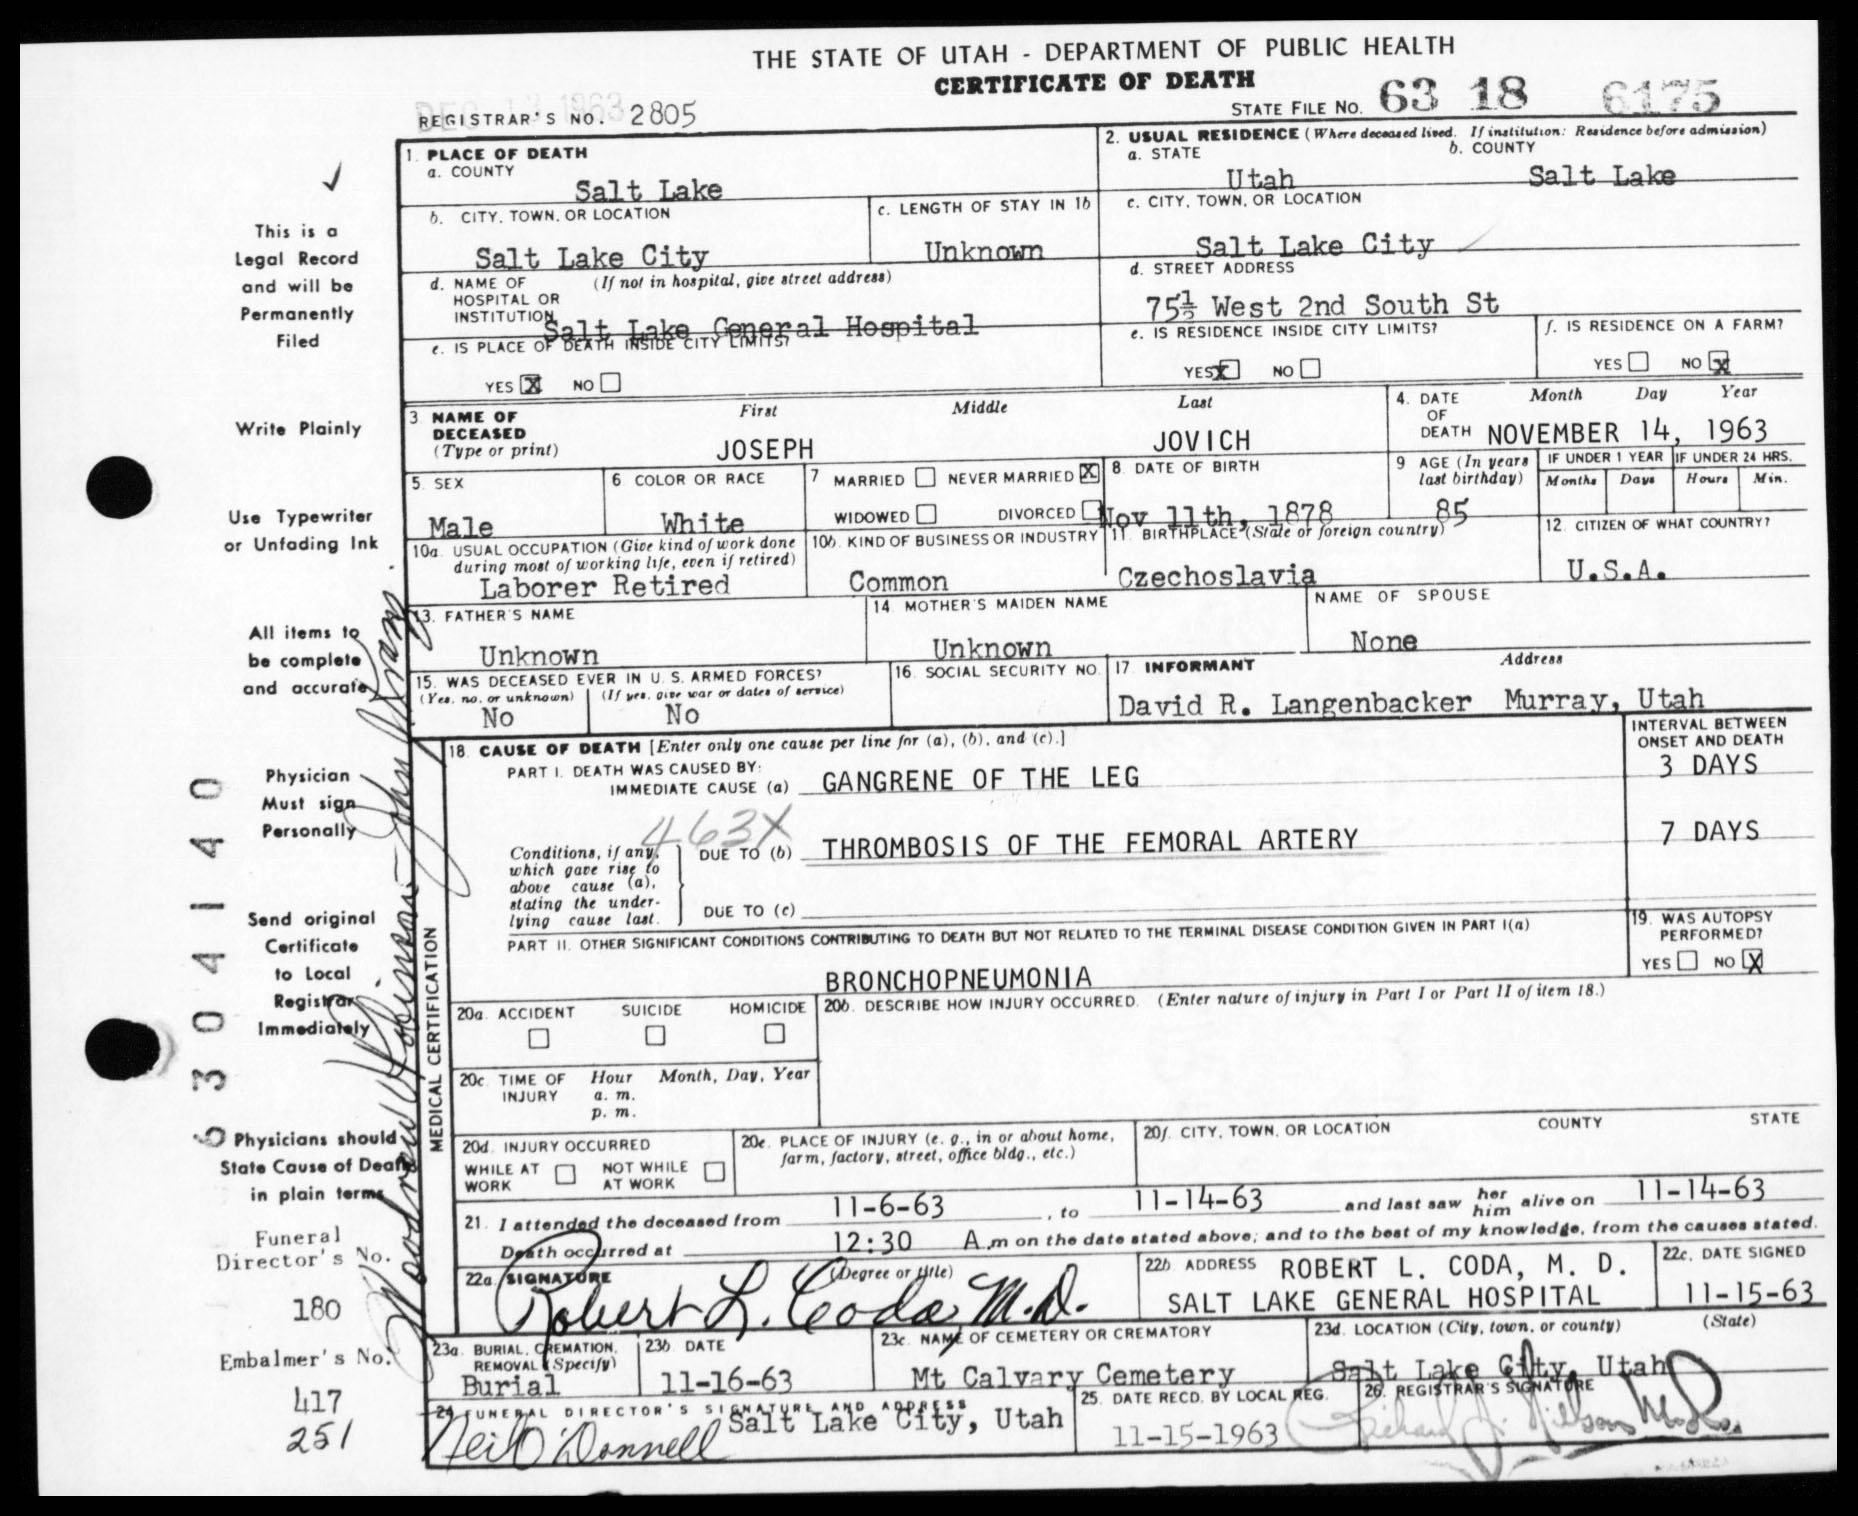 THE STATE OF UTAH - DEPARTMENT OF PUBLIC HEALTH
CERTIFICATE OF DEATH
DEC 13 1963
REGISTRAR'S NO. 2805
STATE FILE NO. 63 18 6175
This is a
Legal Record
and will be
Permanently
Filed
Write Plainly
Use Typewriter
or Unfading Ink
All items to
be complete
and accurate
Physician
Must sign
Personally
Send original
Certificate
to Local
Registrar
Immediately
Physicians should
State Cause of Death
in plain terms
Funeral
Director's No.
180
Embalmer's No.
417
251
6304140
1. PLACE OF DEATH
a. COUNTY
Salt Lake
b. CITY, TOWN, OR LOCATION
Salt Lake City
c. LENGTH OF STAY IN 1b
Unknown
d. NAME OF HOSPITAL OR INSTITUTION (If not in hospital, give street address)
Salt Lake General Hospital
e. IS PLACE OF DEATH INSIDE CITY LIMITS?
YES X NO
2. USUAL RESIDENCE (Where deceased lived. If institution: Residence before admission)
a. STATE
Utah
b. COUNTY
Salt Lake
c. CITY, TOWN, OR LOCATION
Salt Lake City
d. STREET ADDRESS
75½ West 2nd South St
e. IS RESIDENCE INSIDE CITY LIMITS?
YES X NO
f. IS RESIDENCE ON A FARM?
YES NO X
3. NAME OF DECEASED (Type or print)
First Middle Last
JOSEPH JOVICH
4. DATE OF DEATH Month Day Year
NOVEMBER 14, 1963
5. SEX
Male
6. COLOR OR RACE
White
7 MARRIED NEVER MARRIED X
WIDOWED DIVORCED
8. DATE OF BIRTH
Nov 11th, 1878
9 AGE (In years last birthday)
85
IF UNDER 1 YEAR IF UNDER 24 HRS.
Months Days Hours Min.
10a. USUAL OCCUPATION (Give kind of work done during most of working life, even if retired)
Laborer Retired
10b. KIND OF BUSINESS OR INDUSTRY
Common
11. BIRTHPLACE (State or foreign country)
Czechoslavia
12. CITIZEN OF WHAT COUNTRY?
U.S.A.
13. FATHER'S NAME
Unknown
14. MOTHER'S MAIDEN NAME
Unknown
NAME OF SPOUSE
None
15. WAS DECEASED EVER IN U. S. ARMED FORCES?
(Yes, no, or unknown) (If yes, give war or dates of service)
No No
16. SOCIAL SECURITY NO.
17. INFORMANT Address
David R. Langenbacker Murray, Utah
MEDICAL CERTIFICATION
18. CAUSE OF DEATH [Enter only one cause per line for (a), (b), and (c).]
INTERVAL BETWEEN ONSET AND DEATH
PART I. DEATH WAS CAUSED BY:
IMMEDIATE CAUSE (a) GANGRENE OF THE LEG 3 DAYS
463X
Conditions, if any, which gave rise to above cause (a), stating the underlying cause last.
DUE TO (b) THROMBOSIS OF THE FEMORAL ARTERY 7 DAYS
DUE TO (c)
PART II. OTHER SIGNIFICANT CONDITIONS CONTRIBUTING TO DEATH BUT NOT RELATED TO THE TERMINAL DISEASE CONDITION GIVEN IN PART I(a)
BRONCHOPNEUMONIA
19. WAS AUTOPSY PERFORMED?
YES NO X
20a. ACCIDENT SUICIDE HOMICIDE
20b. DESCRIBE HOW INJURY OCCURRED. (Enter nature of injury in Part I or Part II of item 18.)
20c. TIME OF INJURY Hour Month, Day, Year
a. m.
p. m.
20d. INJURY OCCURRED
WHILE AT WORK NOT WHILE AT WORK
20e. PLACE OF INJURY (e. g., in or about home, farm, factory, street, office bldg., etc.)
20f. CITY, TOWN, OR LOCATION COUNTY STATE
21. I attended the deceased from 11-6-63, to 11-14-63 and last saw her him alive on 11-14-63
Death occurred at 12:30 A.m on the date stated above; and to the best of my knowledge, from the causes stated.
22a. SIGNATURE (Degree or title)
Robert L. Coda, M.D.
22b. ADDRESS ROBERT L. CODA, M. D.
SALT LAKE GENERAL HOSPITAL
22c. DATE SIGNED
11-15-63
23a. BURIAL, CREMATION, REMOVAL (Specify)
Burial
23b. DATE
11-16-63
23c. NAME OF CEMETERY OR CREMATORY
Mt Calvary Cemetery
23d. LOCATION (City, town, or county) (State)
Salt Lake City, Utah
24. FUNERAL DIRECTOR'S SIGNATURE AND ADDRESS
Neil O'Donnell Salt Lake City, Utah
25. DATE RECD. BY LOCAL REG.
11-15-1963
26. REGISTRAR'S SIGNATURE